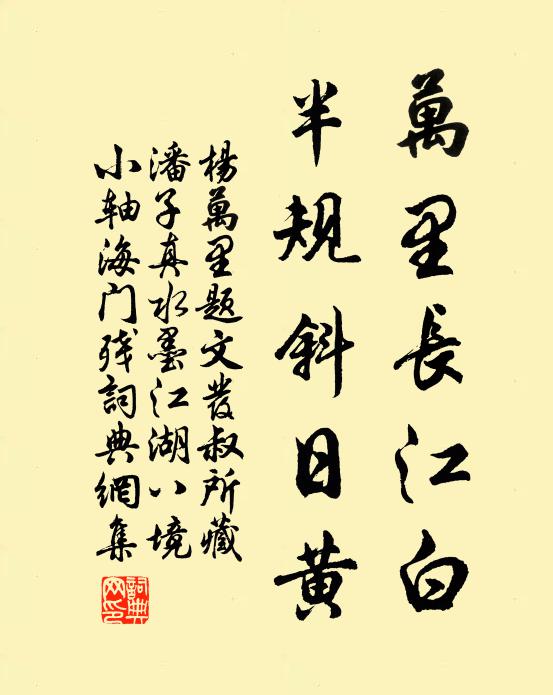 萬里長江白
半規斜日黃
楊萬里題文發叔所藏
潘子真水墨江湖八境
小軸海門殘詞典網集
詞典网印